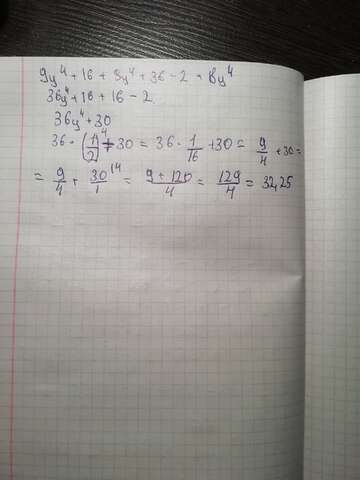 9y⁴ + 16 + 9y⁴ + 36 - 2 · 8y⁴
36y⁴ + 16 + 16 - 2
36y⁴ + 30
36 · (1/2)⁴ + 30 = 36 · 1/16 + 30 = 9/4 + 30 =
= 9/4 + 30/1 ¹⁴ = 9 + 120/4 = 129/4 = 32,25